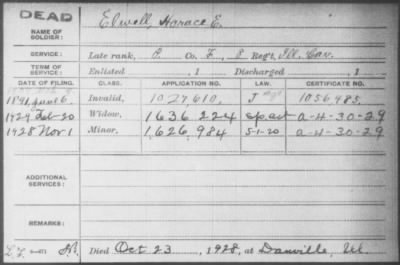 DEAD
NAME OF SOLDIER: Elwell, Horace E.
SERVICE: Late rank, P. Co. F, 8 Reg't Ill. Cav.
TERM OF SERVICE: Enlisted , 1 Discharged , 1
DATE OF FILING. CLASS. APPLICATION NO. LAW. CERTIFICATE NO.
1891, June 6. Invalid, 1027,610. 1056,985.
1929 Feb-20 Widow, 1636,224 sp. act a-4-30-29
1928 Nov 1 Minor, 1,626,984 5-1-20 a-4-30-29
ADDITIONAL SERVICES:
REMARKS:
Died Oct 23, 1928, at Danville, Ill.